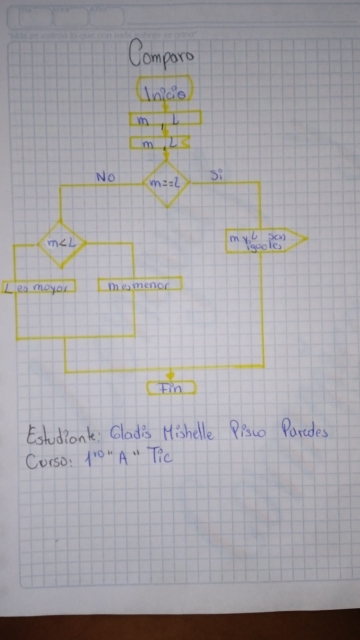 Comparo
Inicio
m , L
m , L
No
m==L
Si
m<L
m y L son
iguales
L es mayor
m es menor
Fin
Estudiante: Gladis Mishelle Pisco Paredes
Curso: 1ro "A" Tic